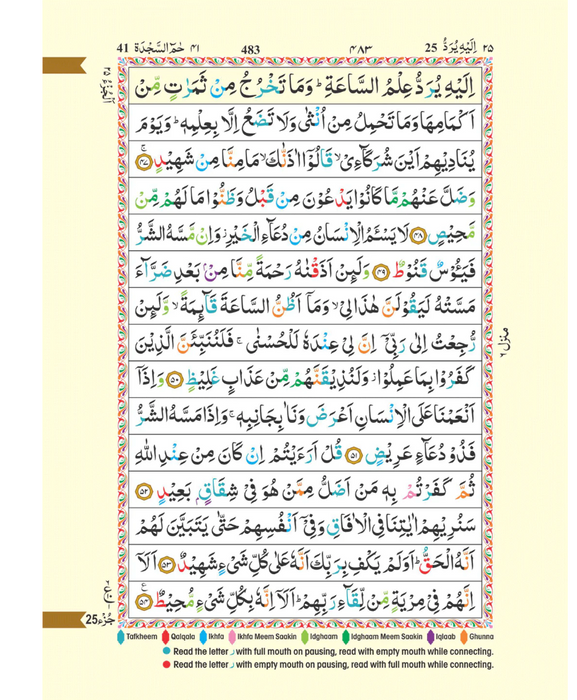 41 حٰمٓ السَّجْدَة ٤١ 483 ٤٨٣ 25 اِلَيْهِ يُرَدُّ ٢٥
اِلَيْهِ يُرَدُّ عِلْمُ السَّاعَةِ ؕ وَمَا تَخْرُجُ مِنْ ثَمَرٰتٍ مِّنْ
اَكْمَامِهَا وَمَا تَحْمِلُ مِنْ اُنْثٰى وَلَا تَضَعُ اِلَّا بِعِلْمِهٖ ؕ وَيَوْمَ
يُنَادِيْهِمْ اَيْنَ شُرَكَآءِىْ ۙ قَالُوْۤا اٰذَنّٰكَ ۙ مَا مِنَّا مِنْ شَهِيْدٍ ۚ ﴿٤٧﴾
وَضَلَّ عَنْهُمْ مَّا كَانُوْا يَدْعُوْنَ مِنْ قَبْلُ وَظَنُّوْا مَا لَهُمْ مِّنْ
مَّحِيْصٍ ﴿٤٨﴾ لَا يَسْـَٔمُ الْاِنْسَانُ مِنْ دُعَآءِ الْخَيْرِ ۫ وَاِنْ مَّسَّهُ الشَّرُّ
فَيَـُٔوْسٌ قَنُوْطٌ ﴿٤٩﴾ وَلَىِٕنْ اَذَقْنٰهُ رَحْمَةً مِّنَّا مِنْۢ بَعْدِ ضَرَّآءَ
مَسَّتْهُ لَيَقُوْلَنَّ هٰذَا لِىْ ۙ وَمَاۤ اَظُنُّ السَّاعَةَ قَآىِٕمَةً ۙ وَّلَىِٕنْ
رُّجِعْتُ اِلٰى رَبِّىْۤ اِنَّ لِىْ عِنْدَهٗ لَلْحُسْنٰى ۚ فَلَنُنَبِّئَنَّ الَّذِيْنَ
كَفَرُوْا بِمَا عَمِلُوْا ۫ وَلَنُذِيْقَنَّهُمْ مِّنْ عَذَابٍ غَلِيْظٍ ﴿٥٠﴾ وَاِذَاۤ
اَنْعَمْنَا عَلَى الْاِنْسَانِ اَعْرَضَ وَنَاٰ بِجَانِبِهٖ ۚ وَاِذَا مَسَّهُ الشَّرُّ
فَذُوْ دُعَآءٍ عَرِيْضٍ ﴿٥١﴾ قُلْ اَرَءَيْتُمْ اِنْ كَانَ مِنْ عِنْدِ اللّٰهِ
ثُمَّ كَفَرْتُمْ بِهٖ مَنْ اَضَلُّ مِمَّنْ هُوَ فِىْ شِقَاقٍۭ بَعِيْدٍ ﴿٥٢﴾
سَنُرِيْهِمْ اٰيٰتِنَا فِى الْاٰفَاقِ وَفِىْۤ اَنْفُسِهِمْ حَتّٰى يَتَبَيَّنَ لَهُمْ
اَنَّهُ الْحَقُّ ؕ اَوَلَمْ يَكْفِ بِرَبِّكَ اَنَّهٗ عَلٰى كُلِّ شَىْءٍ شَهِيْدٌ ﴿٥٣﴾ اَلَاۤ
اِنَّهُمْ فِىْ مِرْيَةٍ مِّنْ لِّقَآءِ رَبِّهِمْ ؕ اَلَاۤ اِنَّهٗ بِكُلِّ شَىْءٍ مُّحِيْطٌ ﴿٥٤﴾
منزل ٦
جُزء 25
Tafkheem Qalqala Ikhfa Ikhfa Meem Saakin Idghaam Idghaam Meem Saakin Iqlaab Ghunna
Read the letter ر with full mouth on pausing, read with empty mouth while connecting.
Read the letter ر with empty mouth on pausing, read with full mouth while connecting.